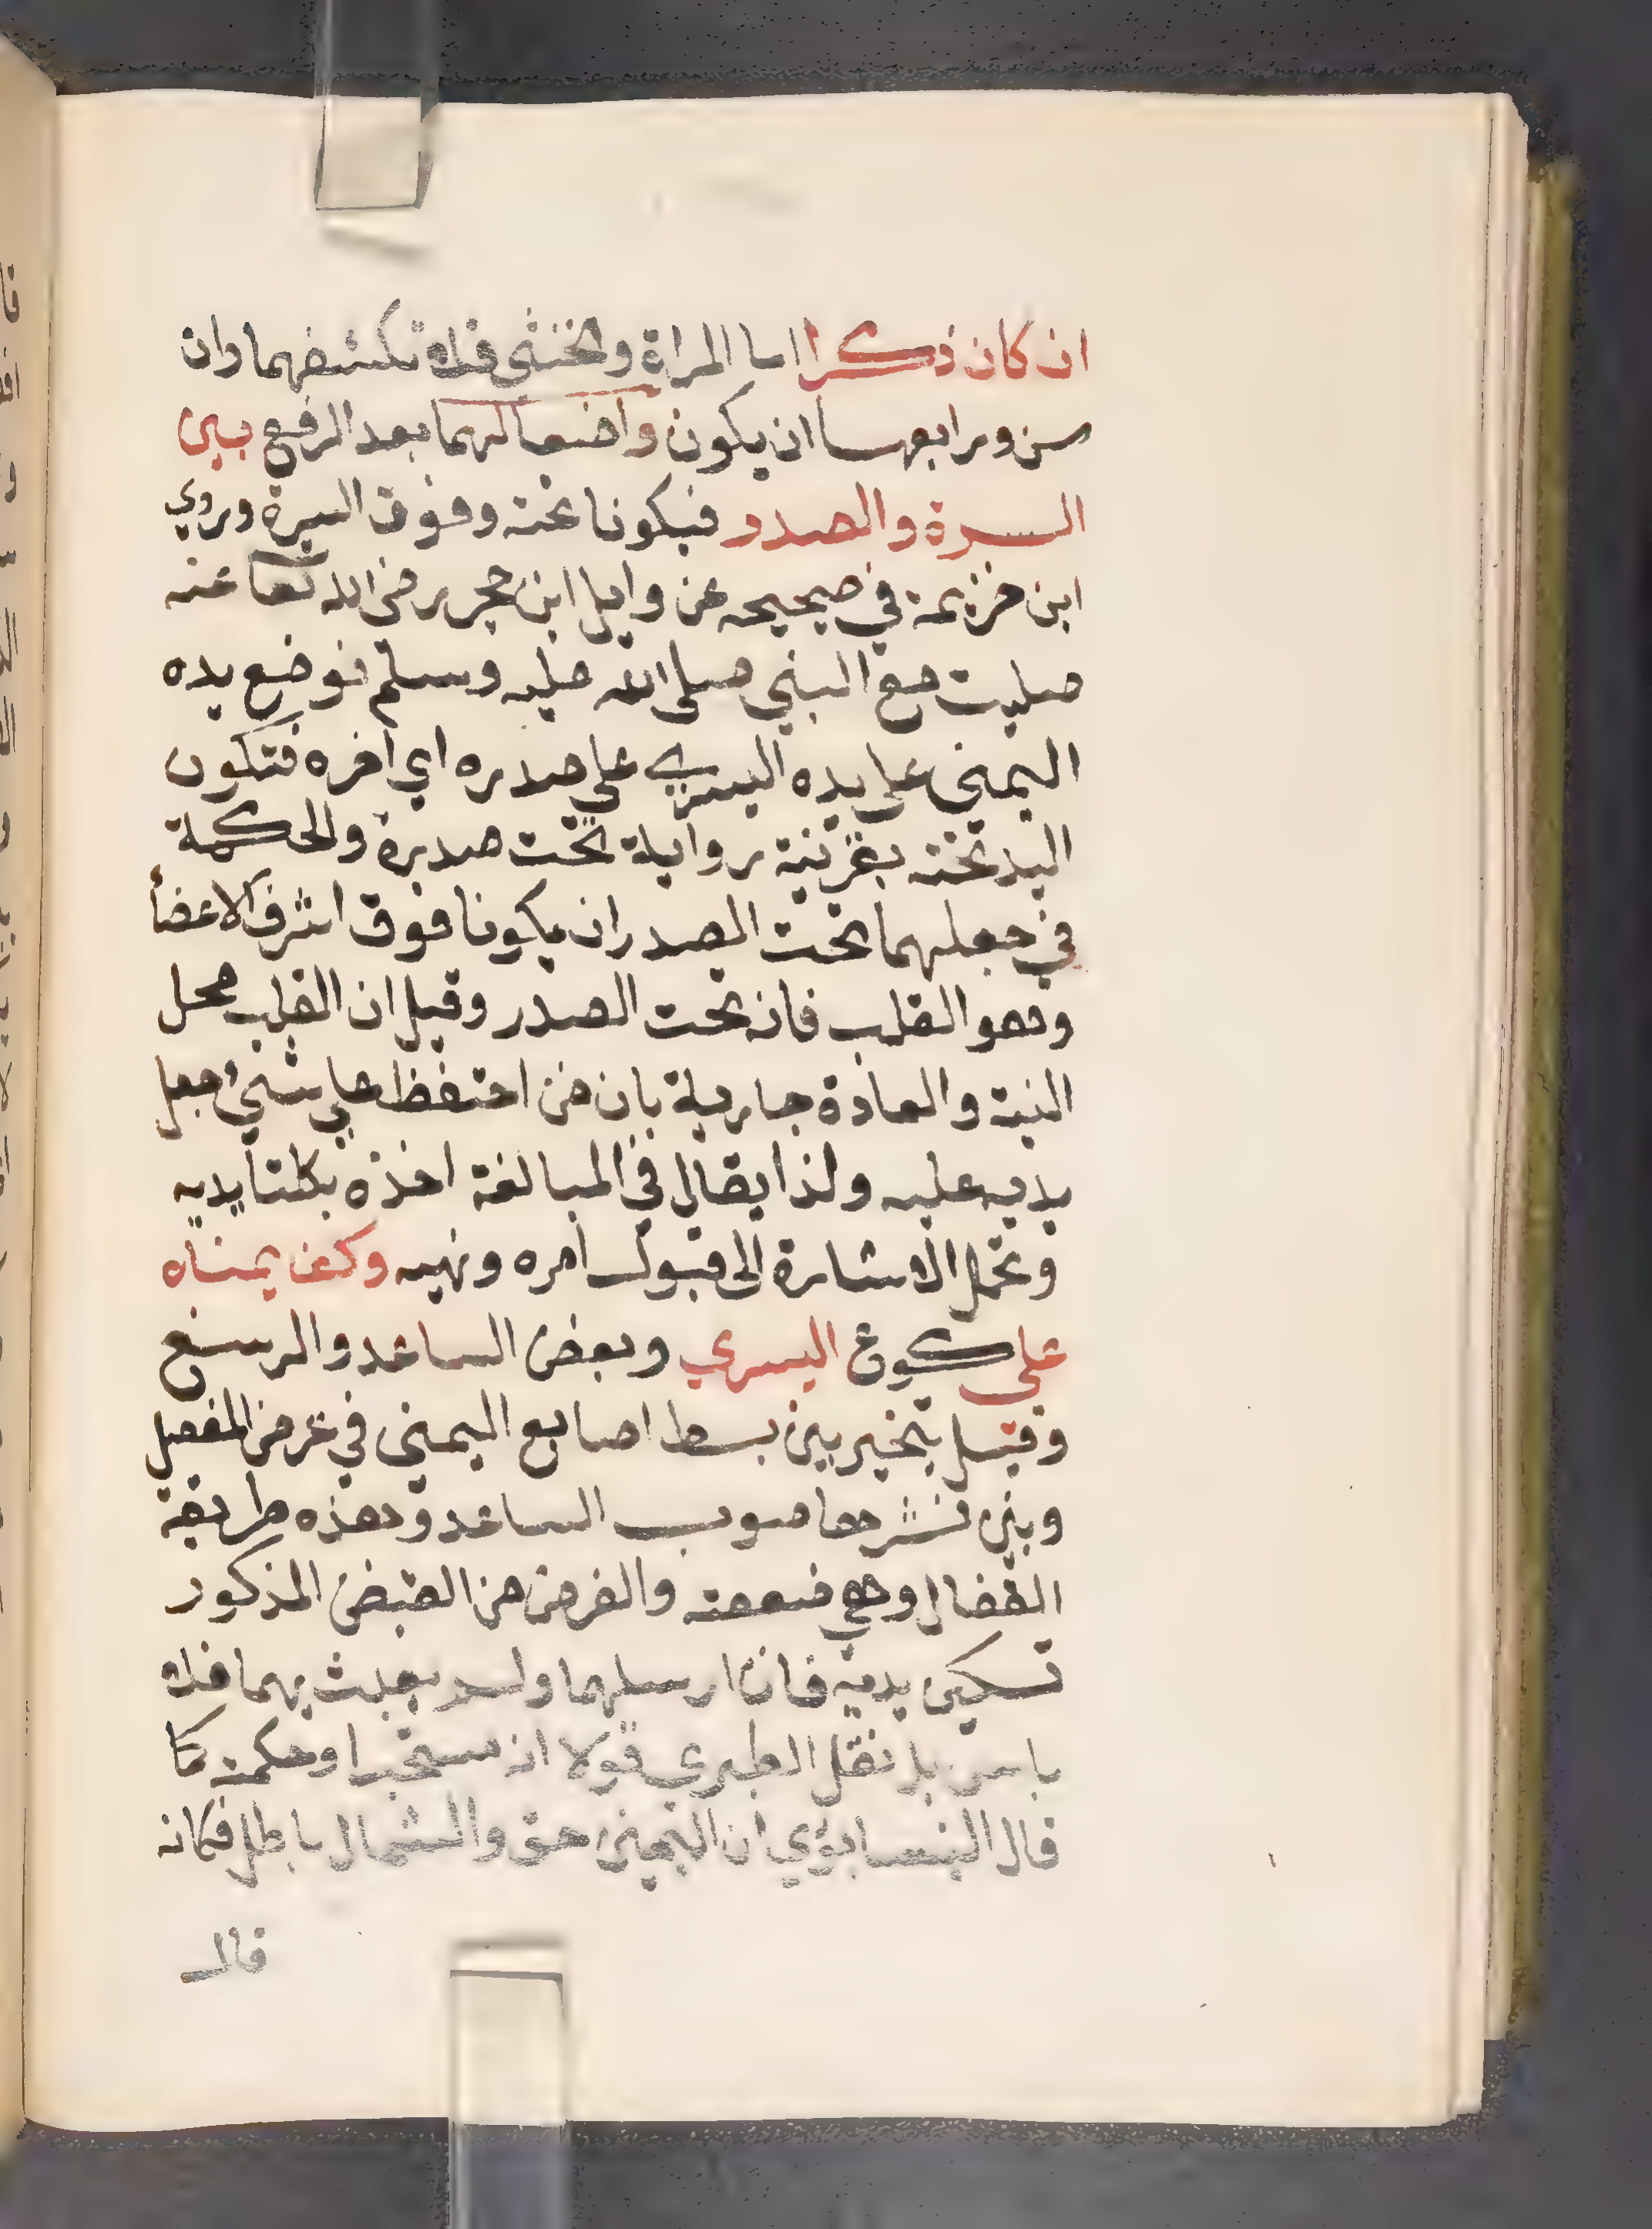 ان كان ذكرا اما المراة والخنثى فلا تكشفهما وان
من ورابعها ان يكون واضعا لهما بعد الرفع بين
السرة والصدر فيكونا تحته وفوق السرة وروي
ابن خزيمة في صحيحه عن وايل ابن حجر رضى الله تعا عنه
صليت مع النبي صلى الله عليه وسلم فوضع يده
اليمنى على يده اليسرى على صدره اي اخره فتكون
اليد تحته بقرينة رواية تحت صدره والحكمة
في جعلهما تحت الصدر ان يكونا فوق اشرف الاعضأ
وهو القلب فانه تحت الصدر وقيل ان القلب محل
النية والعادة جارية بان من احتفظ على شئ جعل
يديه عليه ولذا يقال في المبالغة اخذه بكلتا يديه
وتحمل الاشارة الى قبول امره ونهيه وكف يمناه
على كوع اليسرى وبعض الساعد والرسغ
وقيل يتخير بين بسط اصابع اليمنى في عرض المفصل
وبين نشرها صوب الساعد وهذه طريقة
القفال وهي ضعيفة والغرض من القبض المذكور
تسكين يديه فان ارسلهما ولم يعبث بهما فلا
باس بل نقل الطبري قولا انه مستحب وحكمة كما
قال النيسابوري ان اليمين حق والشمال باطل فكانه
قال